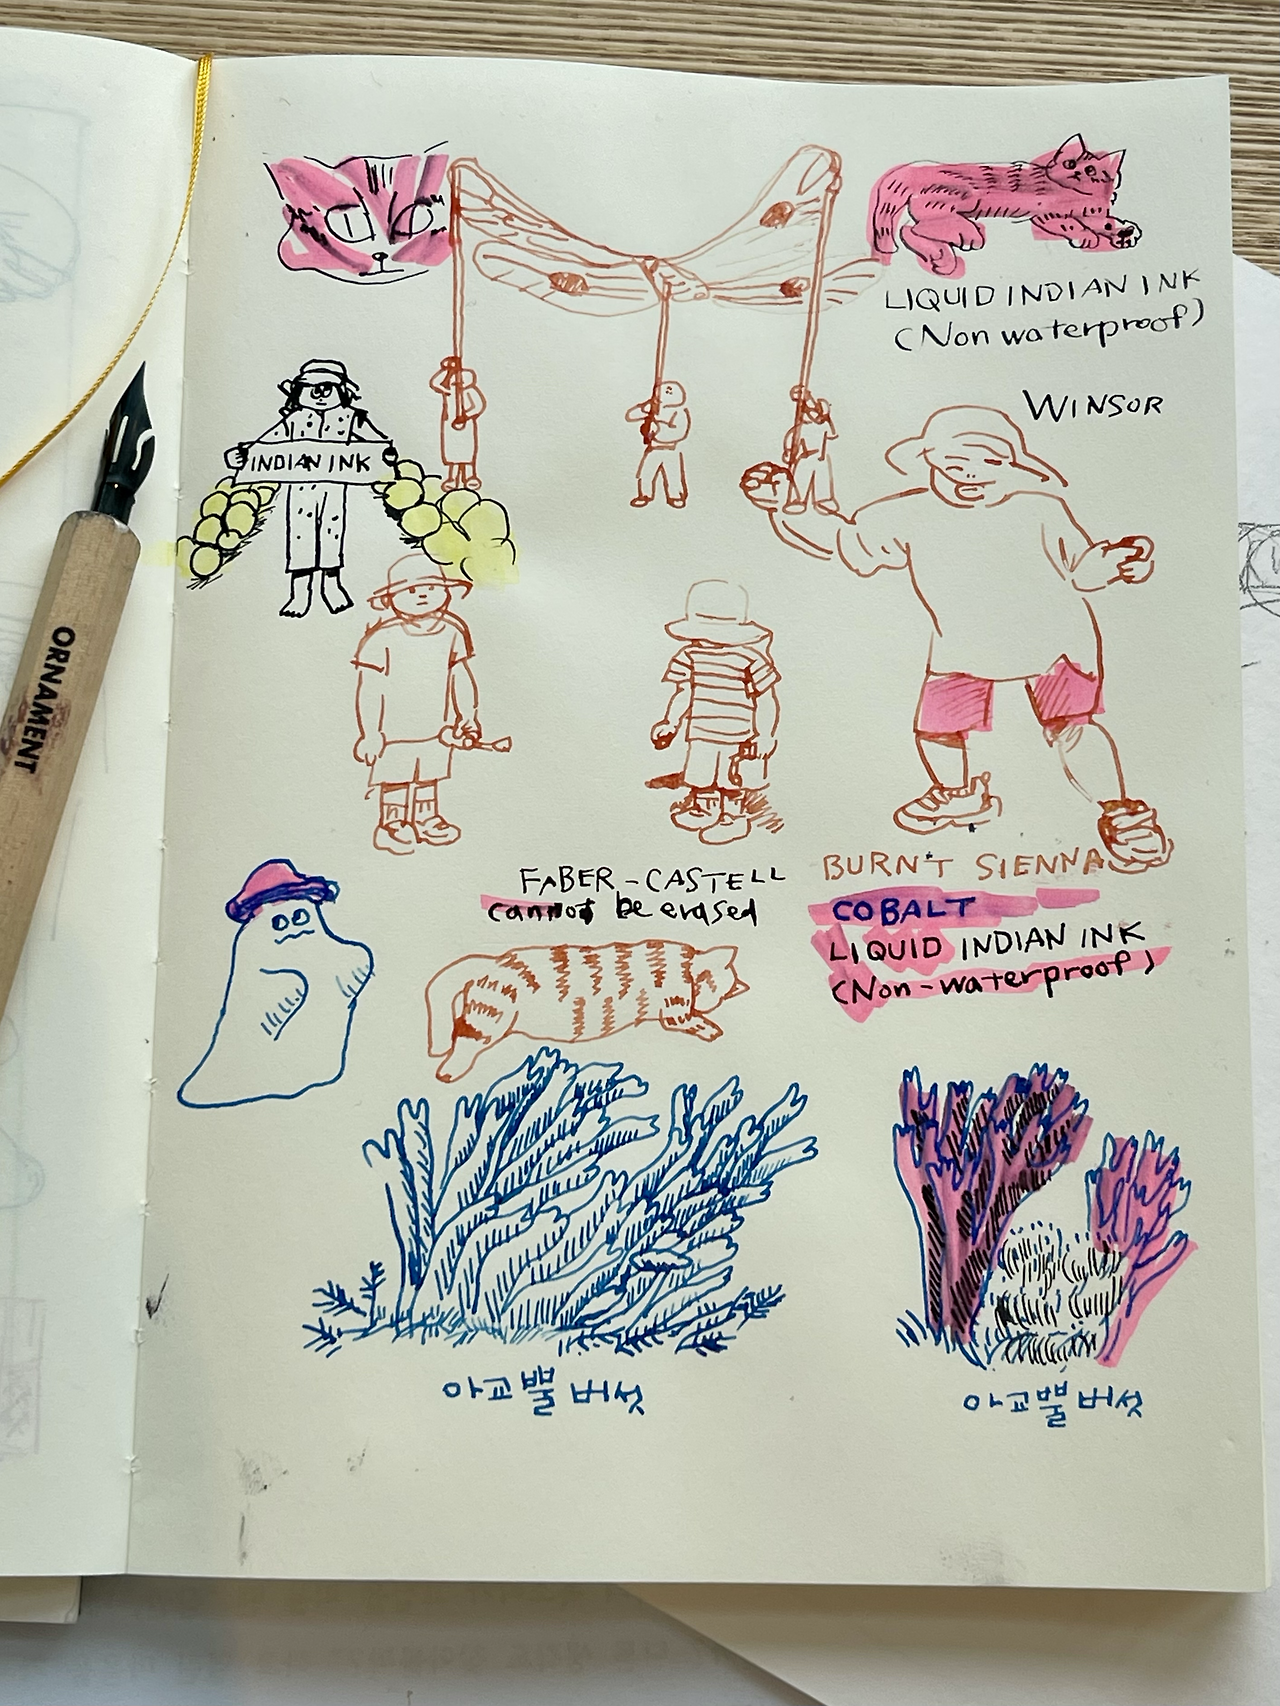 LIQUID INDIAN INK
(Non waterproof)
WINSOR
INDIAN INK
ORNAMENT
FABER-CASTELL
cannot be erased
BURNT SIENNA
COBALT
LIQUID INDIAN INK
(Non-waterproof)
아교뿔버섯
아교뿔버섯